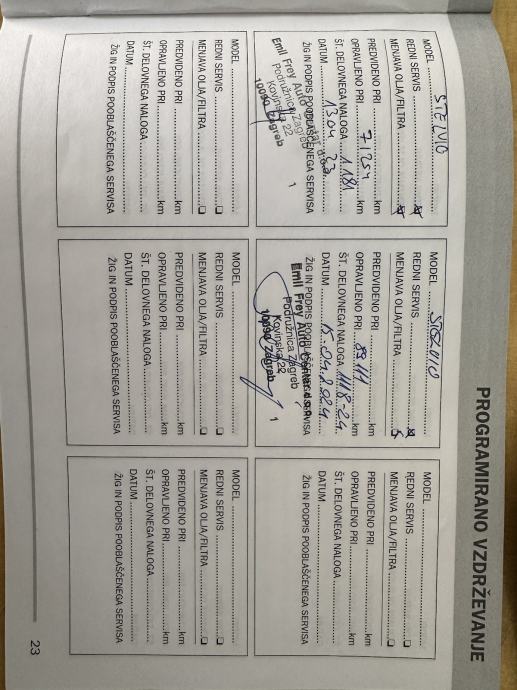 PROGRAMIRANO VZDRŽEVANJE
MODEL STELVIO
REDNI SERVIS
MENJAVA OLJA/FILTRA
PREDVIDENO PRI km
OPRAVLJENO PRI 71254 km
ŠT. DELOVNEGA NALOGA 1181
DATUM 1304 23
ŽIG IN PODPIS POOBLAŠČENEGA SERVISA
Emil Frey Auto
Podružnica Zagreb
Kovinska 22
10090 Zagreb
1
MODEL STELVIO
REDNI SERVIS
MENJAVA OLJA/FILTRA
PREDVIDENO PRI km
OPRAVLJENO PRI 89111 km
ŠT. DELOVNEGA NALOGA 1118-24
DATUM 15.04.2024
ŽIG IN PODPIS POOBLAŠČENEGA SERVISA
Emil Frey Auto Centar d.o.o.
Podružnica Zagreb
Kovinska 22
10090 Zagreb
1
MODEL
REDNI SERVIS
MENJAVA OLJA/FILTRA
PREDVIDENO PRI km
OPRAVLJENO PRI km
ŠT. DELOVNEGA NALOGA
DATUM
ŽIG IN PODPIS POOBLAŠČENEGA SERVISA
MODEL
REDNI SERVIS
MENJAVA OLJA/FILTRA
PREDVIDENO PRI km
OPRAVLJENO PRI km
ŠT. DELOVNEGA NALOGA
DATUM
ŽIG IN PODPIS POOBLAŠČENEGA SERVISA
MODEL
REDNI SERVIS
MENJAVA OLJA/FILTRA
PREDVIDENO PRI km
OPRAVLJENO PRI km
ŠT. DELOVNEGA NALOGA
DATUM
ŽIG IN PODPIS POOBLAŠČENEGA SERVISA
MODEL
REDNI SERVIS
MENJAVA OLJA/FILTRA
PREDVIDENO PRI km
OPRAVLJENO PRI km
ŠT. DELOVNEGA NALOGA
DATUM
ŽIG IN PODPIS POOBLAŠČENEGA SERVISA
23